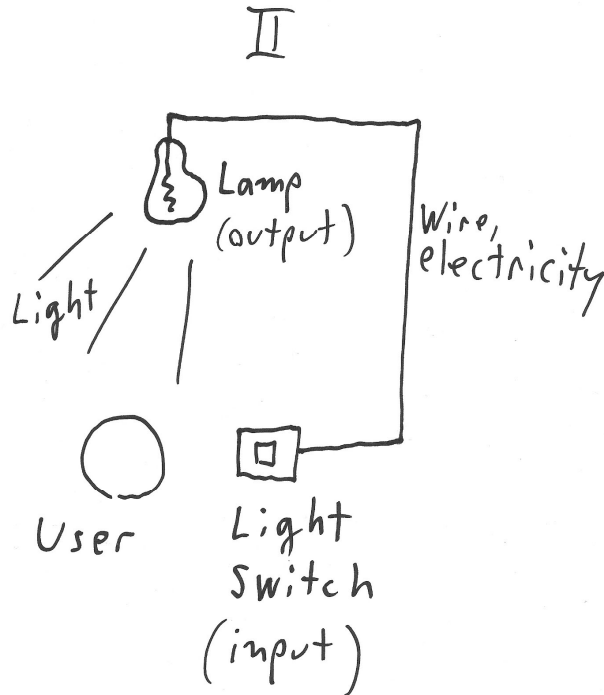 II
Lamp
(output)
Wire,
electricity
Light
User
Light
Switch
(input)